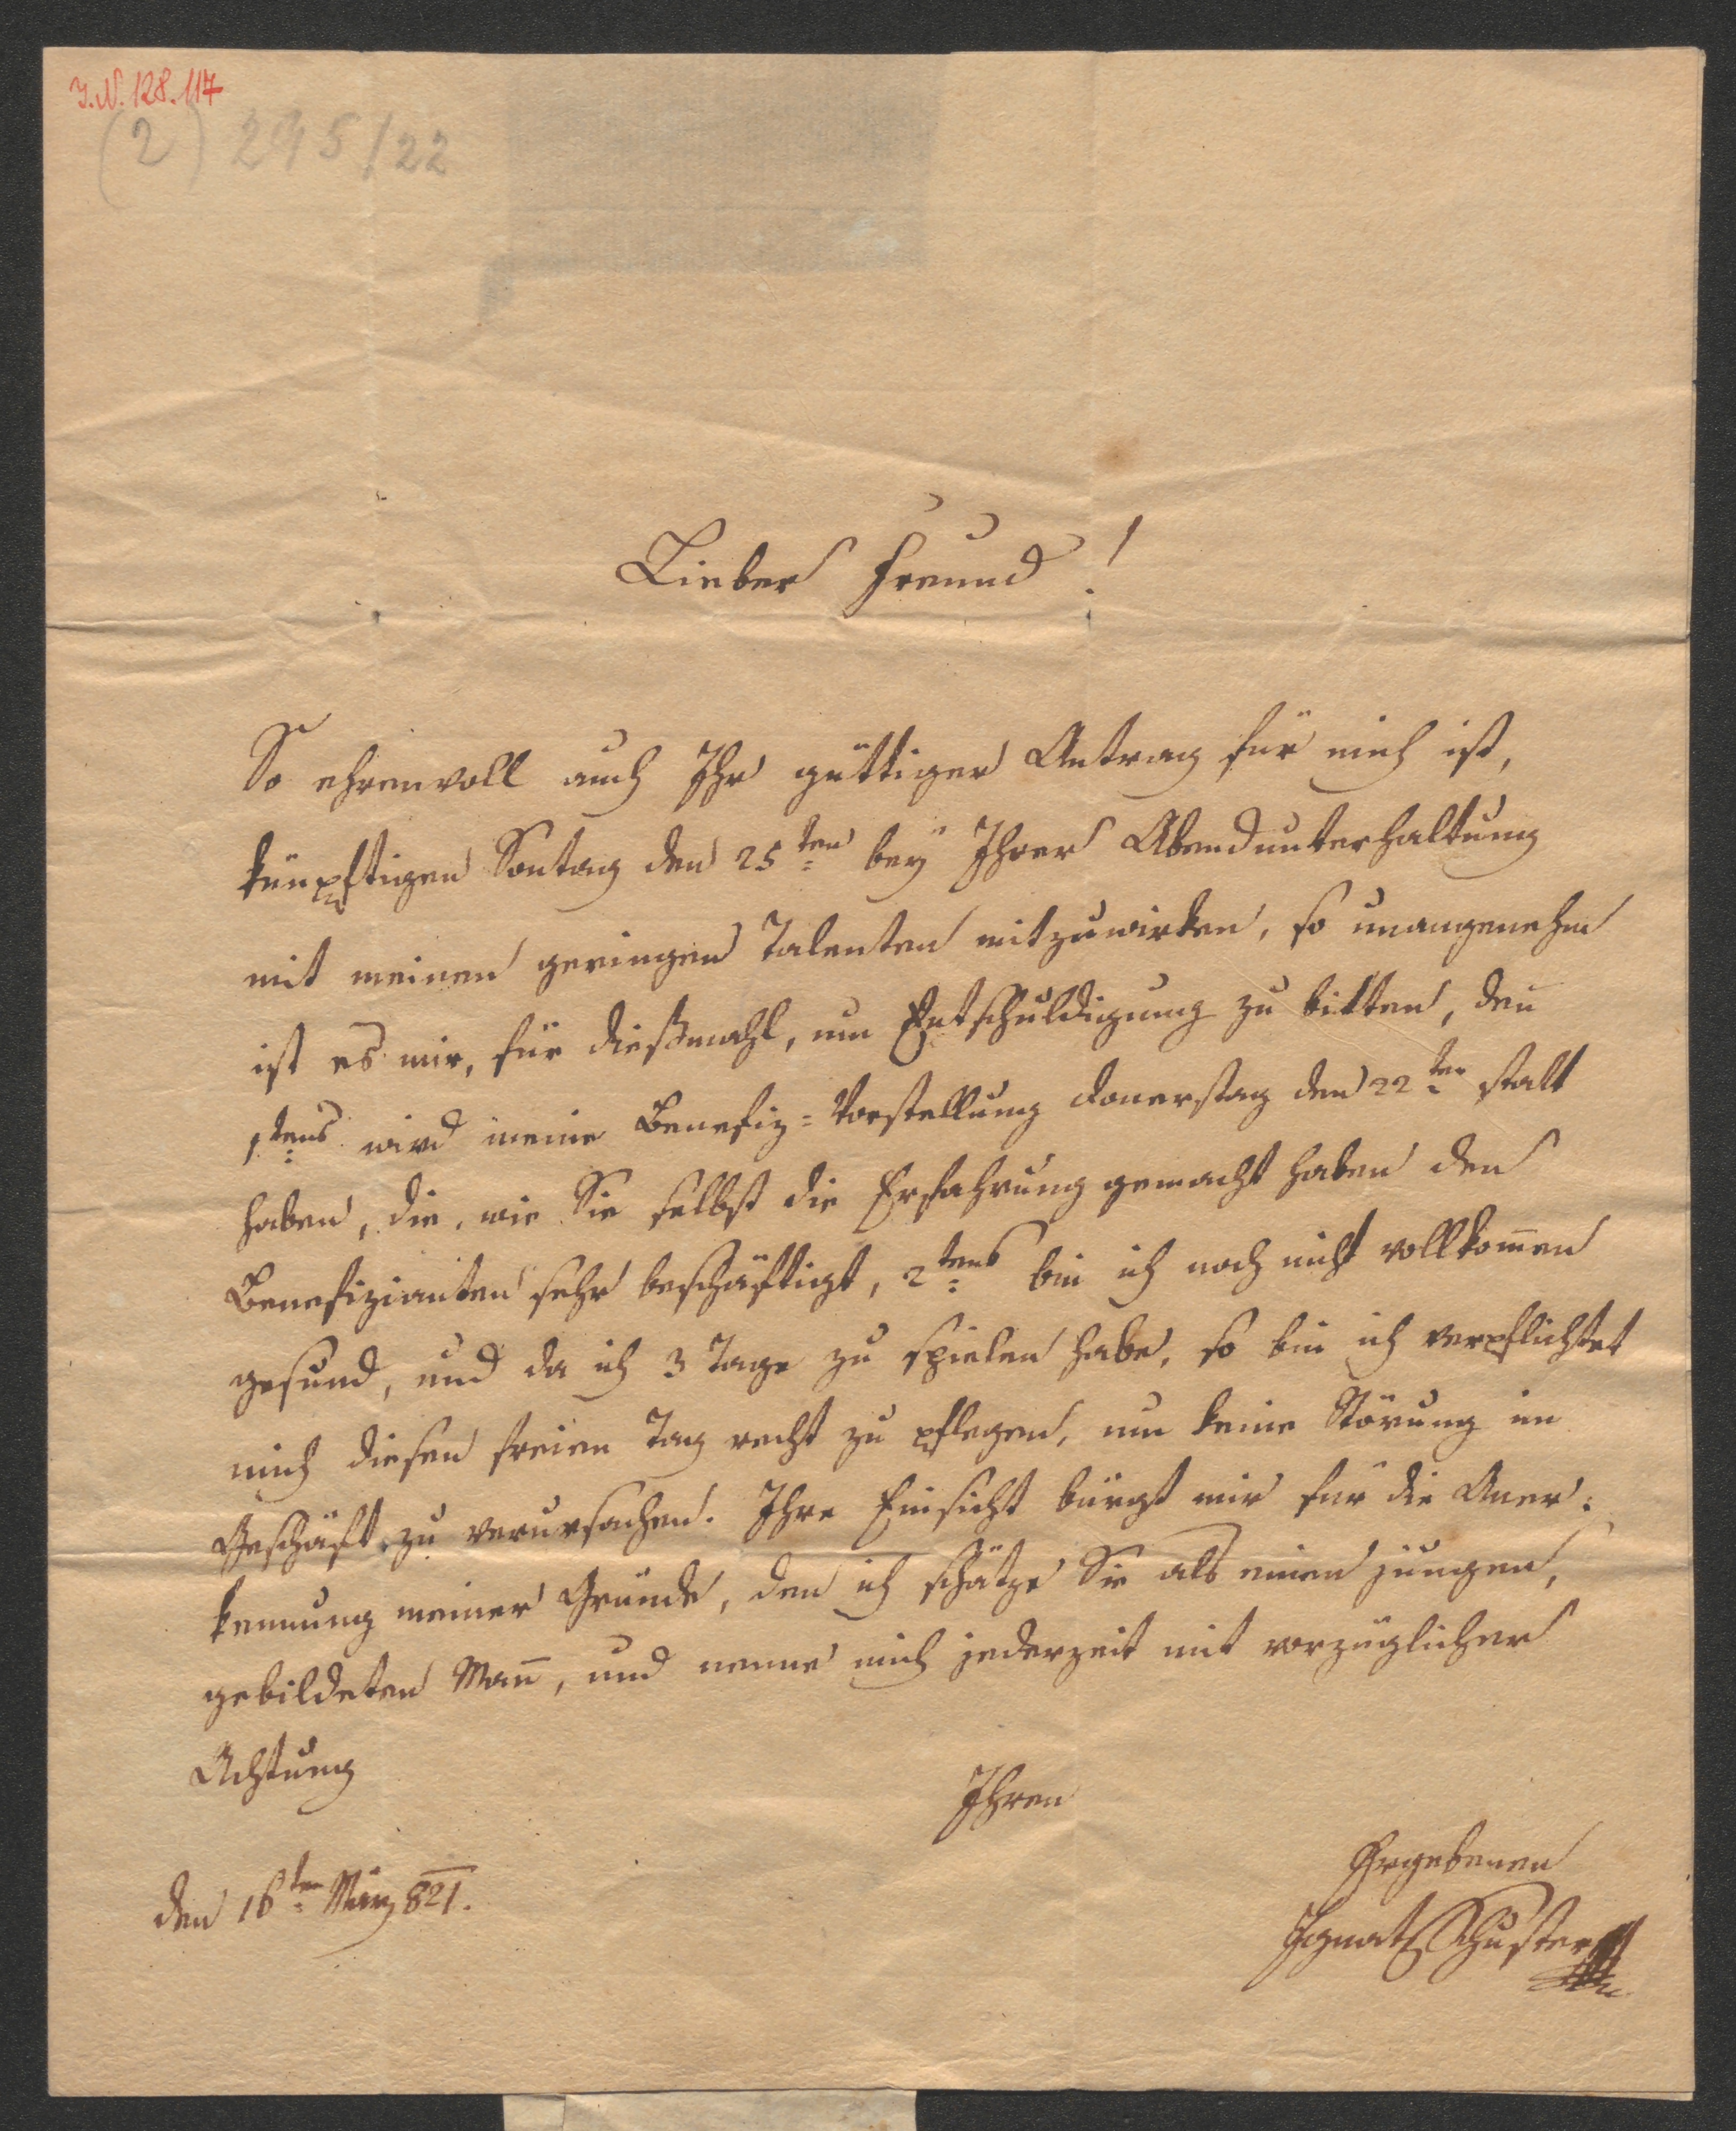 I.N. 128.117
(2) 295/22
Lieber Freund!
So ehrenvoll auch Ihr güttiger Antrag für mich ist,
künpftigen Sontag den 25ten bey Ihrer Abendunterhaltung
mit meinen geringen Talenten mitzuwirken, so unangenehm
ist es mir, für dießmahl, um Entschuldigung zu bitten, deñ
1tens wird meine Benefiz=Vorstellung Donerstag den 22ten statt
haben, die, wie Sie selbst die Erfahrung gemacht haben den
Benefizianten sehr beschäftigt, 2tens bin ich noch nicht vollkom̄en
gesund, und da ich 3 Tage zu spielen habe, so bin ich verpflichtet
mich diesen freien Tag recht zu pflegen, um keine Störung im
Geschäft zu verursachen. Ihre Einsicht bürgt mir für die Aner:
kennung meiner Gründe, den ich schätze Sie als einen jungen,
gebildeten Man̄, und nenne mich jederzeit mit vorzüglicher
Achtung
Ihren
Ergebenen
den 16ten März 821.
Ignatz Schuster